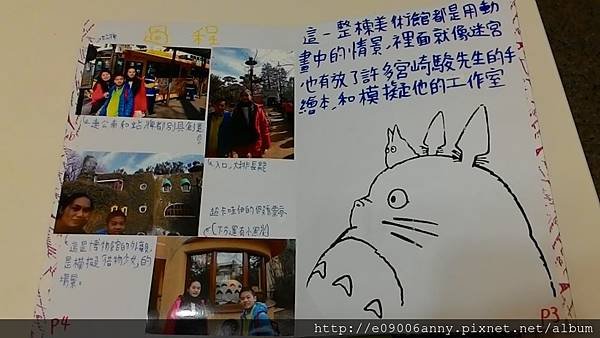 過程
連公車和站牌都別具創意
入口,大排長龍
超卡哇伊的
這是博物館的外觀,
是模擬「借物少女」的
場景。
P4
這一整棟美術館都是用動
畫中的情景,裡面就像迷宮
也有放了許多宮崎駿先生的手
繪本,和模擬他的工作室
P3
http://e09006anny.pixnet.net/album